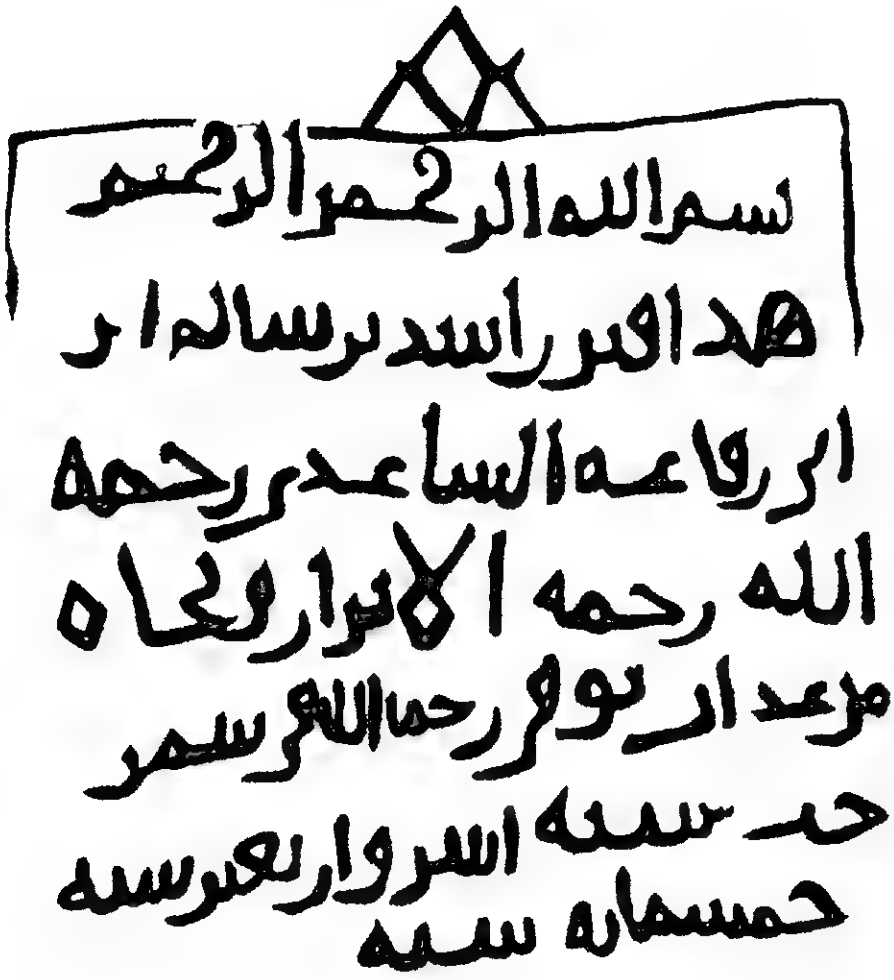 بسم الله الرحمن الرحيم
هذا قبر راشد بن سالم ابن
ابي رفاعه الساعدي رحمه
الله رحمه الابرار ونجاه
من توفي رحمه الله في شهر
سنه اثنين واربعين سنه
خمسمايه سنه